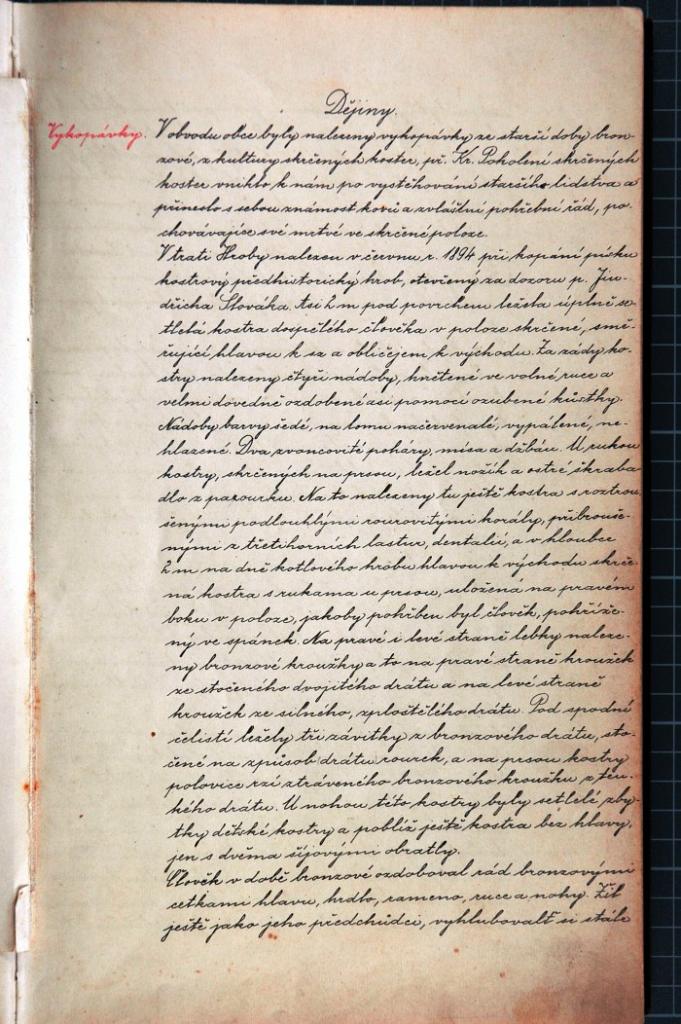 Dějiny.
Vykopávky.
V obvodu obce byly nalezeny vykopávky ze starší doby bron-
zové, z kultury skrčených koster, př. Kr. Pokolení skrčených
koster vniklo k nám po vystěhování staršího lidstva a
přineslo s sebou známost kovů a zvláštní pohřební řád, po-
chovávajíce své mrtvé ve skrčené poloze.
V trati Hroby nalezen v červnu r. 1894 při kopání písku
kostrový předhistorický hrob, otevřený za dozoru p. Jin-
dřicha Slováka. Asi 2 m pod povrchem ležela úplně se-
tlelá kostra dospělého člověka v poloze skrčené, smě-
řující hlavou k sz a obličejem k východu. Za zády ko-
stry nalezeny čtyři nádoby, hnětené ve volné ruce a
velmi dovedně ozdobené asi pomocí ozubené kůstky.
Nádoby barvy šedé, na lomu načervenalé, vypálené, ne-
hlazené. Dva zvoncovité poháry, mísa a džbán. U rukou
kostry, skrčených na prsou, ležel nožík a ostré škraba-
dlo z pazourku. Na to nalezeny tu ještě kostra s roztrou-
šenými podlouhlými rourovitými korály, přibrouše-
nými z třetihorních lastur, dentalií, a v hloubce
2 m na dně kotlového hrobu hlavou k východu skrče-
ná kostra s rukama u prsou, uložená na pravém
boku v poloze, jakoby pohřben byl člověk, pohříže-
ný ve spánek. Na pravé i levé straně lebky naleze-
ny bronzové kroužky a to na pravé straně kroužek
ze stočeného dvojitého drátu a na levé straně
kroužek ze silného, zploštělého drátu. Pod spodní
čelistí ležely tři závitky z bronzového drátu, sto-
čené na způsob drátu rourek, a na prsou kostry
polovice rzí ztráveného bronzového kroužku z ten-
kého drátu. U nohou této kostry byly setlelé zby-
tky dětské kostry a poblíž ještě kostra bez hlavy,
jen s dvěma šíjovými obratly.
Člověk v době bronzové ozdoboval rád bronzovými
cetkami hlavu, hrdlo, rameno, ruce a nohy. Žil
ještě jako jeho předchůdci, vyhluboval si stále